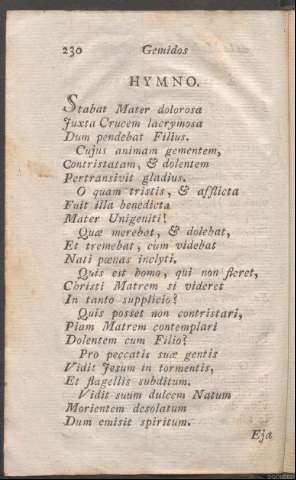 230 Gemidos
HYMNO.
Stabat Mater dolorosa
Juxta Crucem lacrymosa
Dum pendebat Filius.
Cujus animam gementem,
Contristatam, & dolentem
Pertransivit gladius.
O quam tristis, & afflicta
Fuit illa benedicta
Mater Unigeniti!
Quæ merebet, & dolebat,
Et tremebat, cùm videbat
Nati pœnas inclyti.
Quis est homo, qui non fleret,
Christi Matrem si videret
In tanto supplicio?
Quis posset non contristari,
Piam Matrem contemplari
Dolentem cum Filio?
Pro peccatis suæ gentis
Vidit Jesum in tormentis,
Et flagellis subditum.
Vidit suum dulcem Natum
Morientem desolatum
Dum emisit spiritum.
Eja